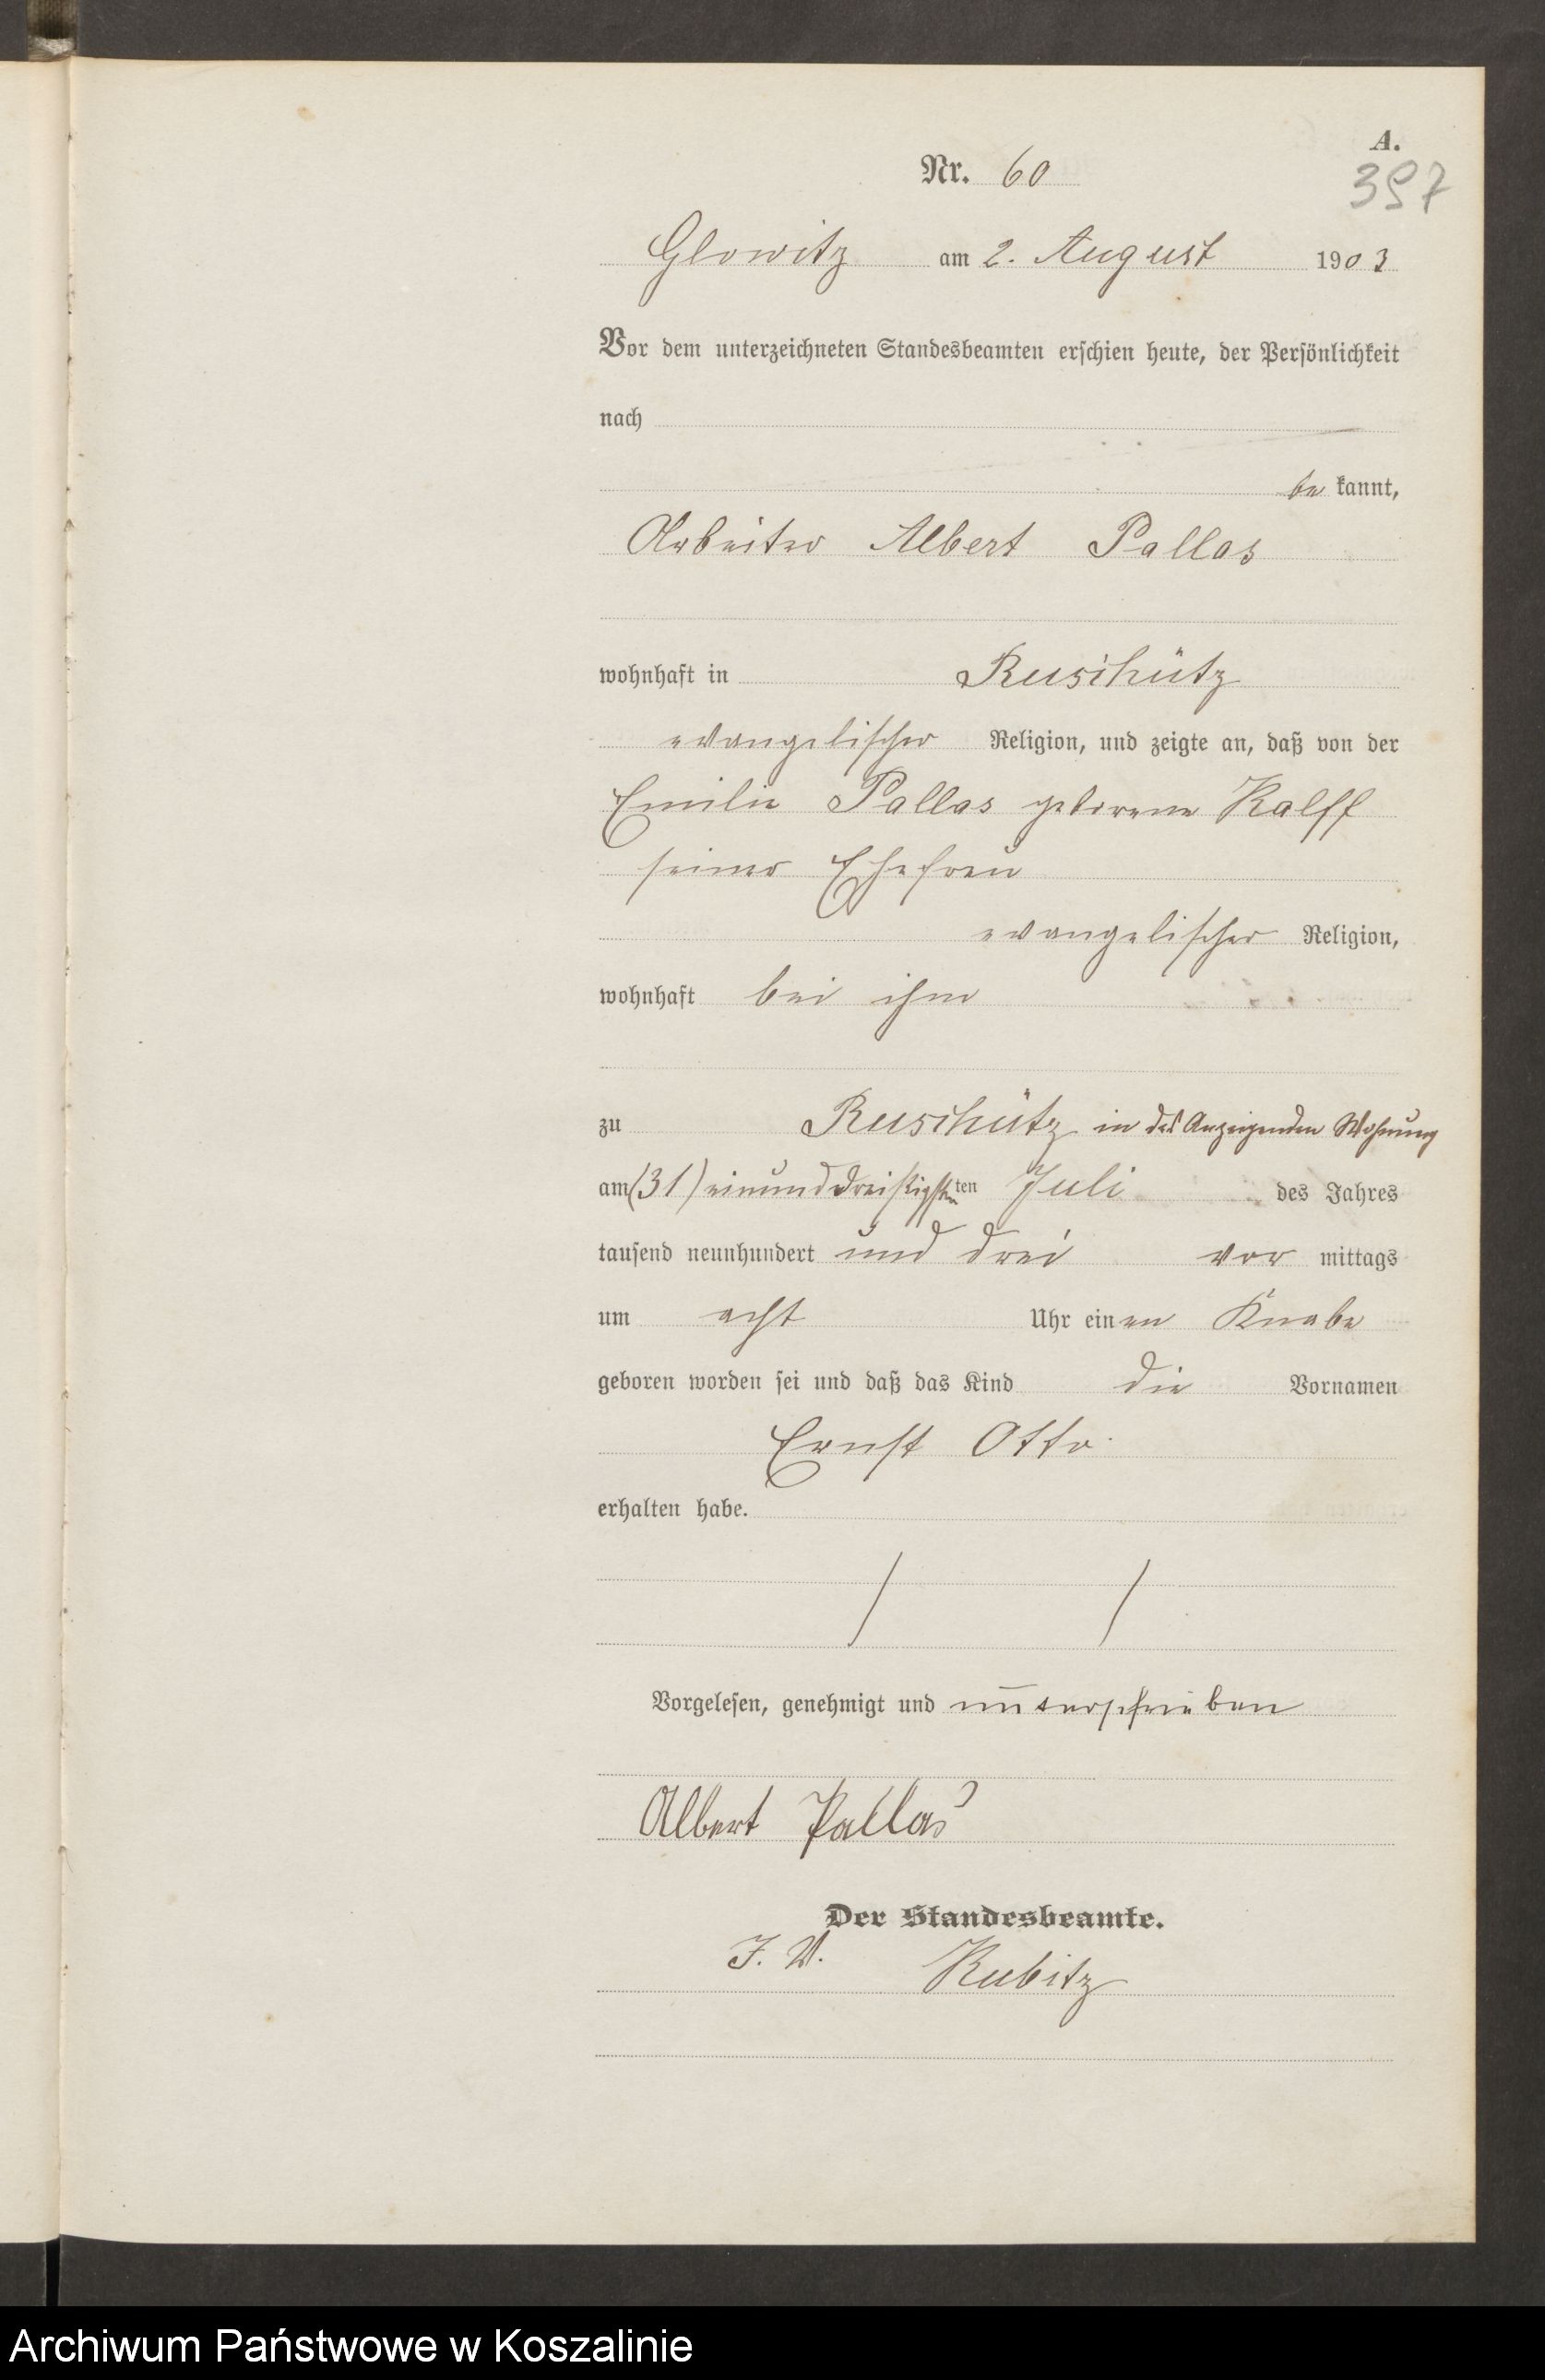 A.
Nr. 60
397
Glowitz am 2. August 1903
Vor dem unterzeichneten Standesbeamten erschien heute, der Persönlichkeit
nach
be kannt,
Arbeiter Albert Pallas
wohnhaft in Ruschütz
evangelischer Religion, und zeigte an, daß von der
Emilie Pallas geborene Kalff
seiner Ehefrau
evangelischer Religion,
wohnhaft bei ihm
zu Ruschütz in des Anzeigenden Wohnung
am (31) einunddreißigsten ten Juli des Jahres
tausend neunhundert und drei vor mittags
um acht Uhr einen Knabe
geboren worden sei und daß das Kind die Vornamen
Ernst Otto
erhalten habe.
Vorgelesen, genehmigt und unterschrieben
Albert Pallas
Der Standesbeamte.
J. V. Kubitz
Archiwum Państwowe w Koszalinie